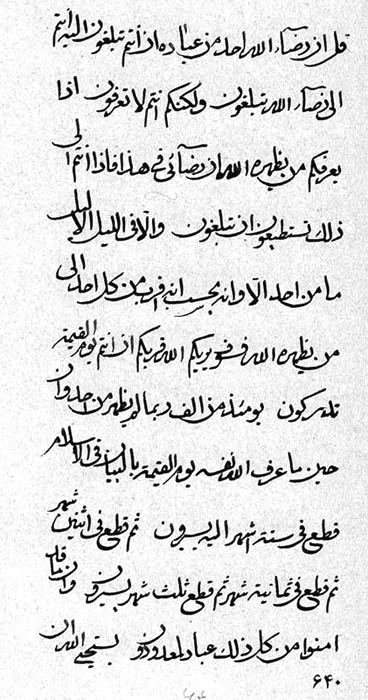 قل ان رضاء الله احد من عباده ان انتم تبلغون اليه انتم
الى رضاء الله تبلغون ولكنكم انتم لا تعرفون اذا
يعرفكم من يظهره الله ان رضائى فى هذا فاذا انتم الى
ذلك تستطيعون ان تبلغون والا فى الليل الاليل
ما من احد الا وانه يحسب انه اقرب من كل احد الى
من يظهره الله فسوف يريكم الله قربكم ان انتم يوم القيمة
تدركون يومئذ من الف ربما لم يظهر من احد وان
حين ما عرف الله نفسه يوم القيمة بالبيان فى الاسلام
قطع فى ستة اشهر اليه يسيرون ثم قطع فى اثنين شهر
ثم قطع فى ثمانية شهر ثم قطع ثلث شهر يسيرون وان ما قد
امنوا من كل ذلك عباد معدودون يستحيى الله ان
۶۴۰